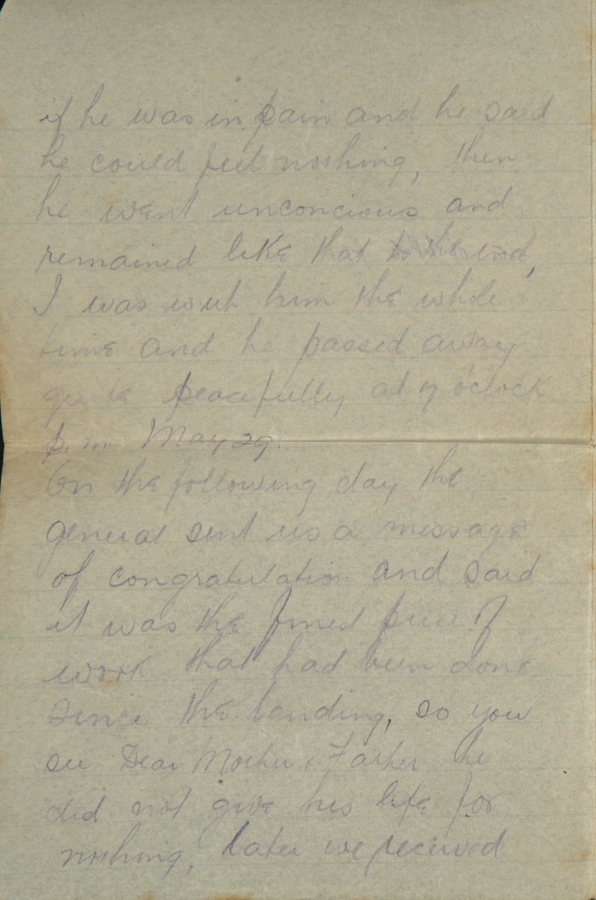 if he was in pain and he said
he could feel nothing, then
he went unconcious and
remained like that to the end,
I was with him the whole
time and he passed away
quite peacefully at 7 o'clock
p.m. May 29.
On the following day the
general sent us a message
of congratulation and said
it was the finest piece of
work that had been done
since the landing, so you
see Dear Mother & Father he
did not give his life for
nothing, later we received